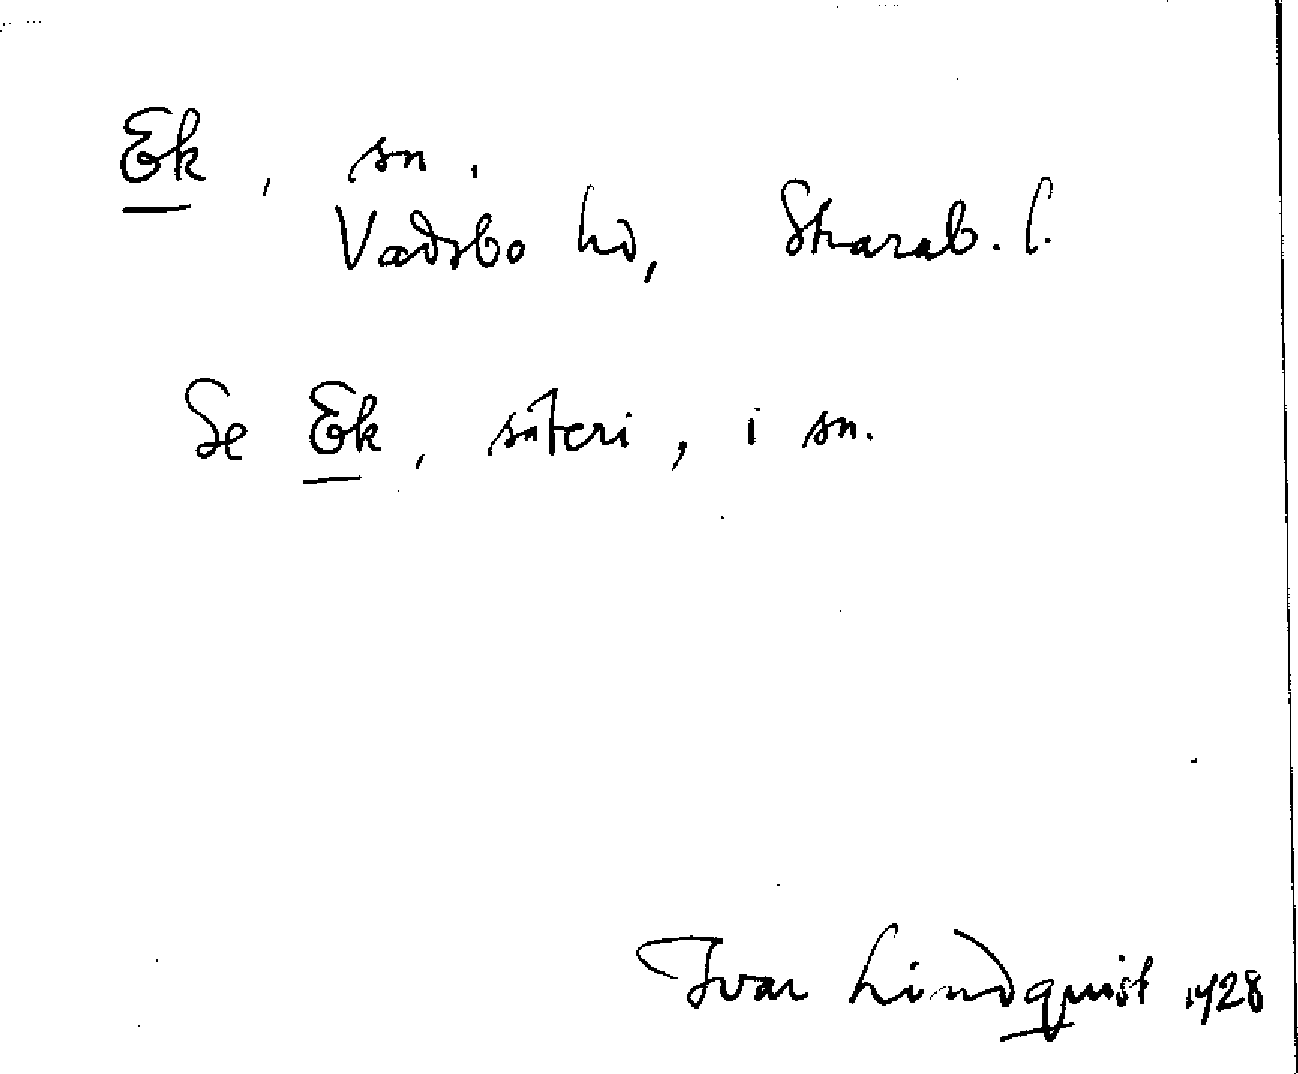 Ek, sn.
Vadsbo hd, Skarab. l.
Se Ek, säteri, i sn.
Ivar Lindquist 1928